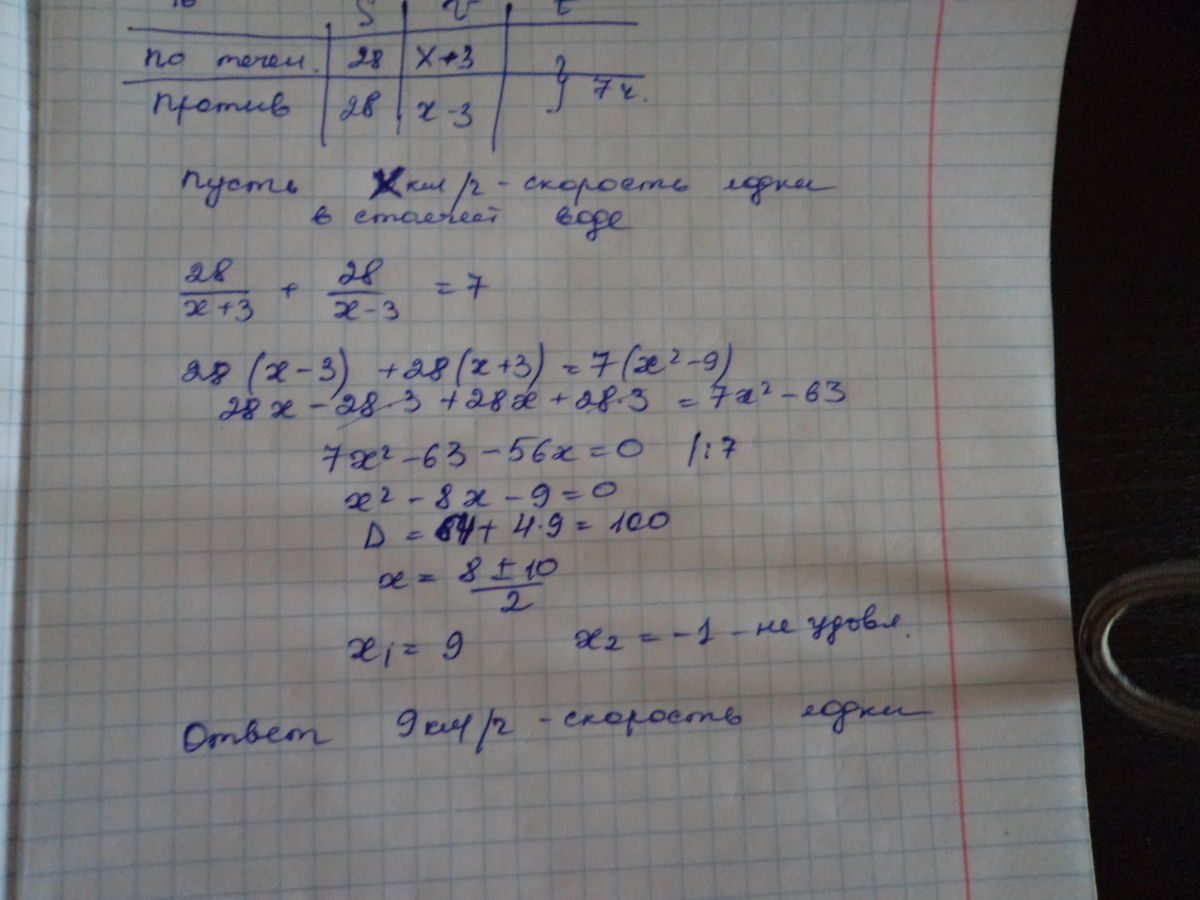 S v t
по течен. 28 x+3
против 28 x-3 } 7 ч.
Пусть x км/ч - скорость лодки
в стоячей воде
28/(x+3) + 28/(x-3) = 7
28(x-3) + 28(x+3) = 7(x²-9)
28x - 28·3 + 28x + 28·3 = 7x² - 63
7x² - 63 - 56x = 0 /:7
x² - 8x - 9 = 0
D = 64 + 4·9 = 100
x = (8 ± 10)/2
x₁ = 9 x₂ = -1 - не удовл.
Ответ 9 км/ч - скорость лодки